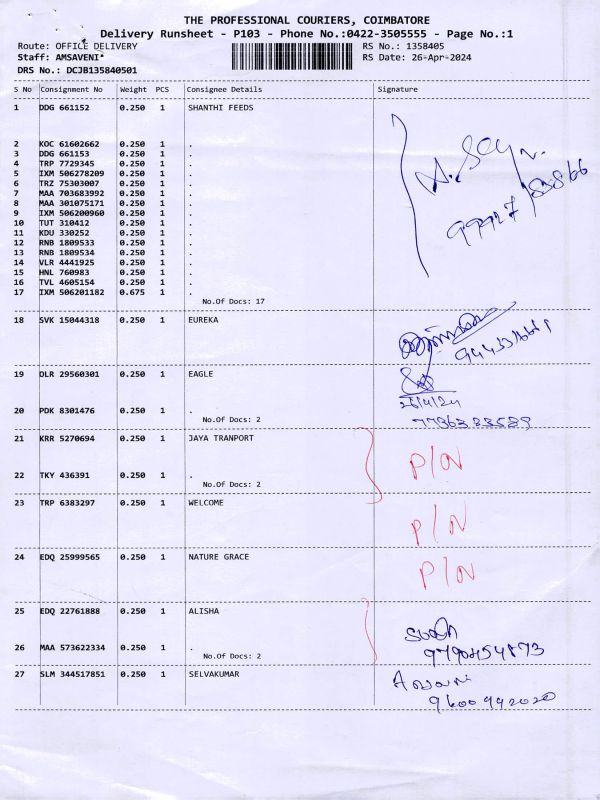 THE PROFESSIONAL COURIERS, COIMBATORE
Delivery Runsheet - P103 - Phone No.:0422-3505555 - Page No.:1
Route: OFFICE DELIVERY RS No.: 1358405
Staff: AMSAVENI* RS Date: 26-Apr-2024
DRS No.: DCJB135840501
S No Consignment No Weight PCS Consignee Details Signature
1 DDG 661152 0.250 1 SHANTHI FEEDS
2 KOC 61602662 0.250 1 .
3 DDG 661153 0.250 1 .
4 TRP 7729345 0.250 1 .
5 IXM 506278209 0.250 1 .
6 TRZ 75303007 0.250 1 .
7 MAA 703683992 0.250 1 .
8 MAA 301075171 0.250 1 .
9 IXM 506200960 0.250 1 .
10 TUT 310412 0.250 1 .
11 KDU 330252 0.250 1 .
12 RNB 1809533 0.250 1 .
13 RNB 1809534 0.250 1 .
14 VLR 4441925 0.250 1 .
15 HNL 760983 0.250 1 .
16 TVL 4605154 0.250 1 .
17 IXM 506201182 0.675 1 .
No.Of Docs: 17
18 SVK 15044318 0.250 1 EUREKA
19 DLR 29560301 0.250 1 EAGLE
26/4/24
20 PDK 8301476 0.250 1 .
No.Of Docs: 2
21 KRR 5270694 0.250 1 JAYA TRANPORT
P/N
22 TKY 436391 0.250 1 .
No.Of Docs: 2
23 TRP 6383297 0.250 1 WELCOME
P/N
24 EDQ 25999565 0.250 1 NATURE GRACE
P/N
25 EDQ 22761888 0.250 1 ALISHA
26 MAA 573622334 0.250 1 .
9790454873
No.Of Docs: 2
27 SLM 344517851 0.250 1 SELVAKUMAR
9600992020